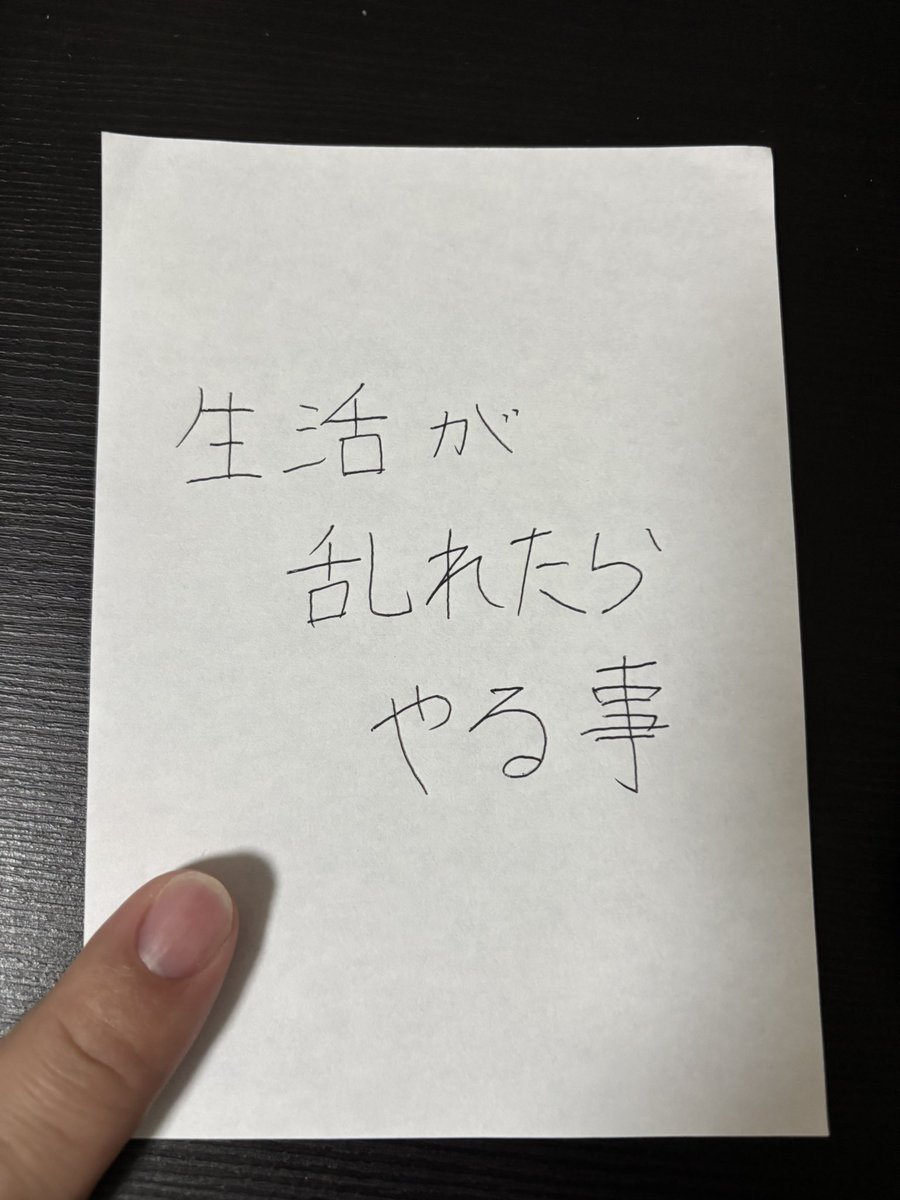 生活が
乱れたら
やる事